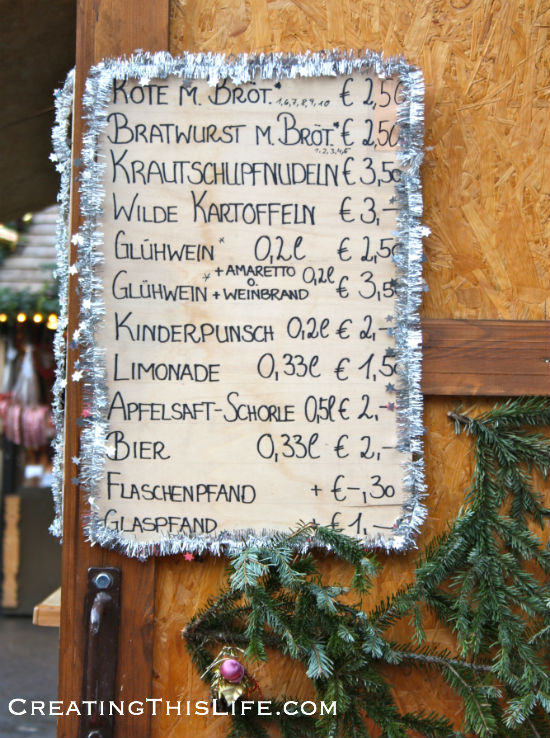 ROTE M. BRÖT.* 1,6,7,8,9,10 € 2,50
BRATWURST M. BRÖT.* 1,2,3,4,5 € 2,50
KRAUTSCHUPFNUDELN € 3,50
WILDE KARTOFFELN € 3,–
GLÜHWEIN* 0,2l € 2,50
GLÜHWEIN* + AMARETTO O. + WEINBRAND 0,2l € 3,50
KINDERPUNSCH 0,2l € 2,–
LIMONADE 0,33l € 1,50
APFELSAFT-SCHORLE 0,5l € 2,–
BIER 0,33l € 2,–
FLASCHENPFAND + €–,30
GLASPFAND + € 1,–
CREATINGTHISLIFE.COM